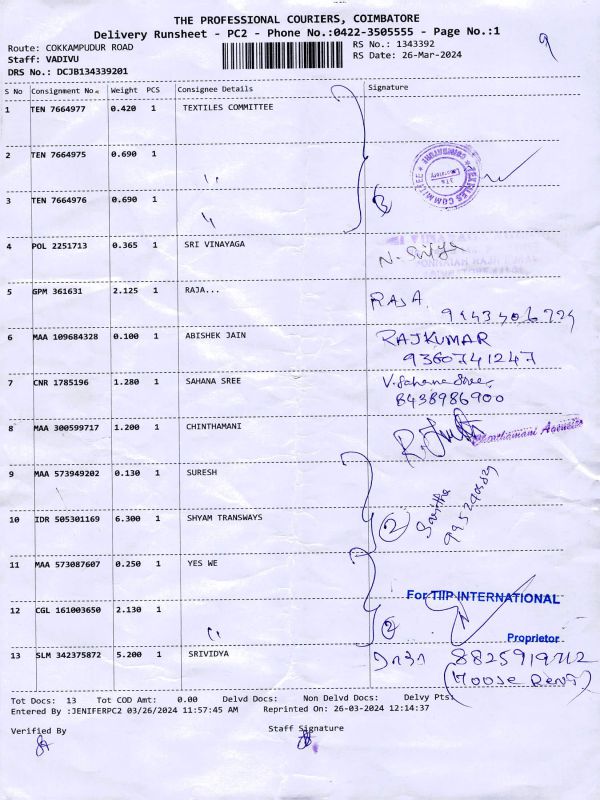 THE PROFESSIONAL COURIERS, COIMBATORE
Delivery Runsheet - PC2 - Phone No.:0422-3505555 - Page No.:1
Route: COKKAMPUDUR ROAD
RS No.: 1343392
9
Staff: VADIVU
RS Date: 26-Mar-2024
DRS No.: DCJB134339201
S No Consignment No. Weight PCS Consignee Details Signature
1 TEN 7664977 0.420 1 TEXTILES COMMITTEE
2 TEN 7664975 0.690 1 〃
TEXTILES COMMITTEE COIMBATORE
3 TEN 7664976 0.690 1 〃 3
4 POL 2251713 0.365 1 SRI VINAYAGA
5 GPM 361631 2.125 1 RAJA... RAJA.
6 MAA 109684328 0.100 1 ABISHEK JAIN RAJKUMAR
9360741247
7 CNR 1785196 1.280 1 SAHANA SREE V. Sahana Sree,
8438986900
8 MAA 300599717 1.200 1 CHINTHAMANI
Chinthamani Agencies
9 MAA 573949202 0.130 1 SURESH
10 IDR 505301169 6.300 1 SHYAM TRANSWAYS 2 Savitha
11 MAA 573087607 0.250 1 YES WE
For TIIP INTERNATIONAL
12 CGL 161003650 2.130 1 〃 2
Proprietor
13 SLM 342375872 5.200 1 SRIVIDYA
Tot Docs: 13 Tot COD Amt: 0.00 Delvd Docs: Non Delvd Docs: Delvy Pts:
Entered By :JENIFERPC2 03/26/2024 11:57:45 AM Reprinted On: 26-03-2024 12:14:37
Verified By Staff Signature